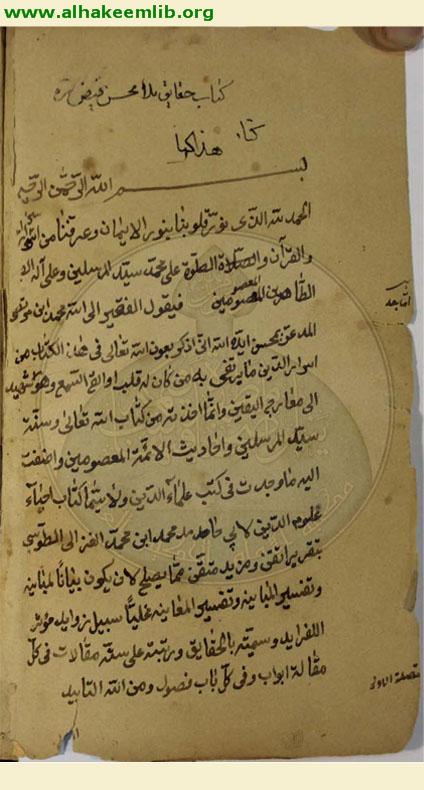 www.alhakeemlib.org
كتاب حقايق ملا محسن فيض
كتاب
هذا
بسم الله الرحمن الرحيم
الحمد لله الذى نور قلوبنا بنور الايمان وعرفنا من
والقرآن والصلوة على محمد سيد المرسلين وعلى آله
الطاهرين المعصومين فيقول الفقير الى الله محمد ابن مرتضى
المدعو بمحسن ايده الله انى اذكر بعون الله تعالى فى هذا الكتاب من
اسرار الدين ما يرتقى به من كان له قلب او القى السمع وهو شهيد
الى معارج اليقين وانما اخذته من كتاب الله تعالى وسنة
سيد المرسلين واحاديث الائمة المعصومين واضفت
اليه ما وجدت فى كتب علماء الدين ولا سيما كتاب احياء
علوم الدين لابى حامد محمد ابن محمد الغزالى الطوسى
بتقرير اتقن ومزيد متقن مما يصلح لان يكون بيانا لمبانيه
وتفسير المبانيه وتفسير المعانيه سبيل زوايد
الفرايد وسميته بالحقايق ورتبته على ستة مقالات فى كل
مقالة ابواب وفى كل باب فصول ومن الله التاييد